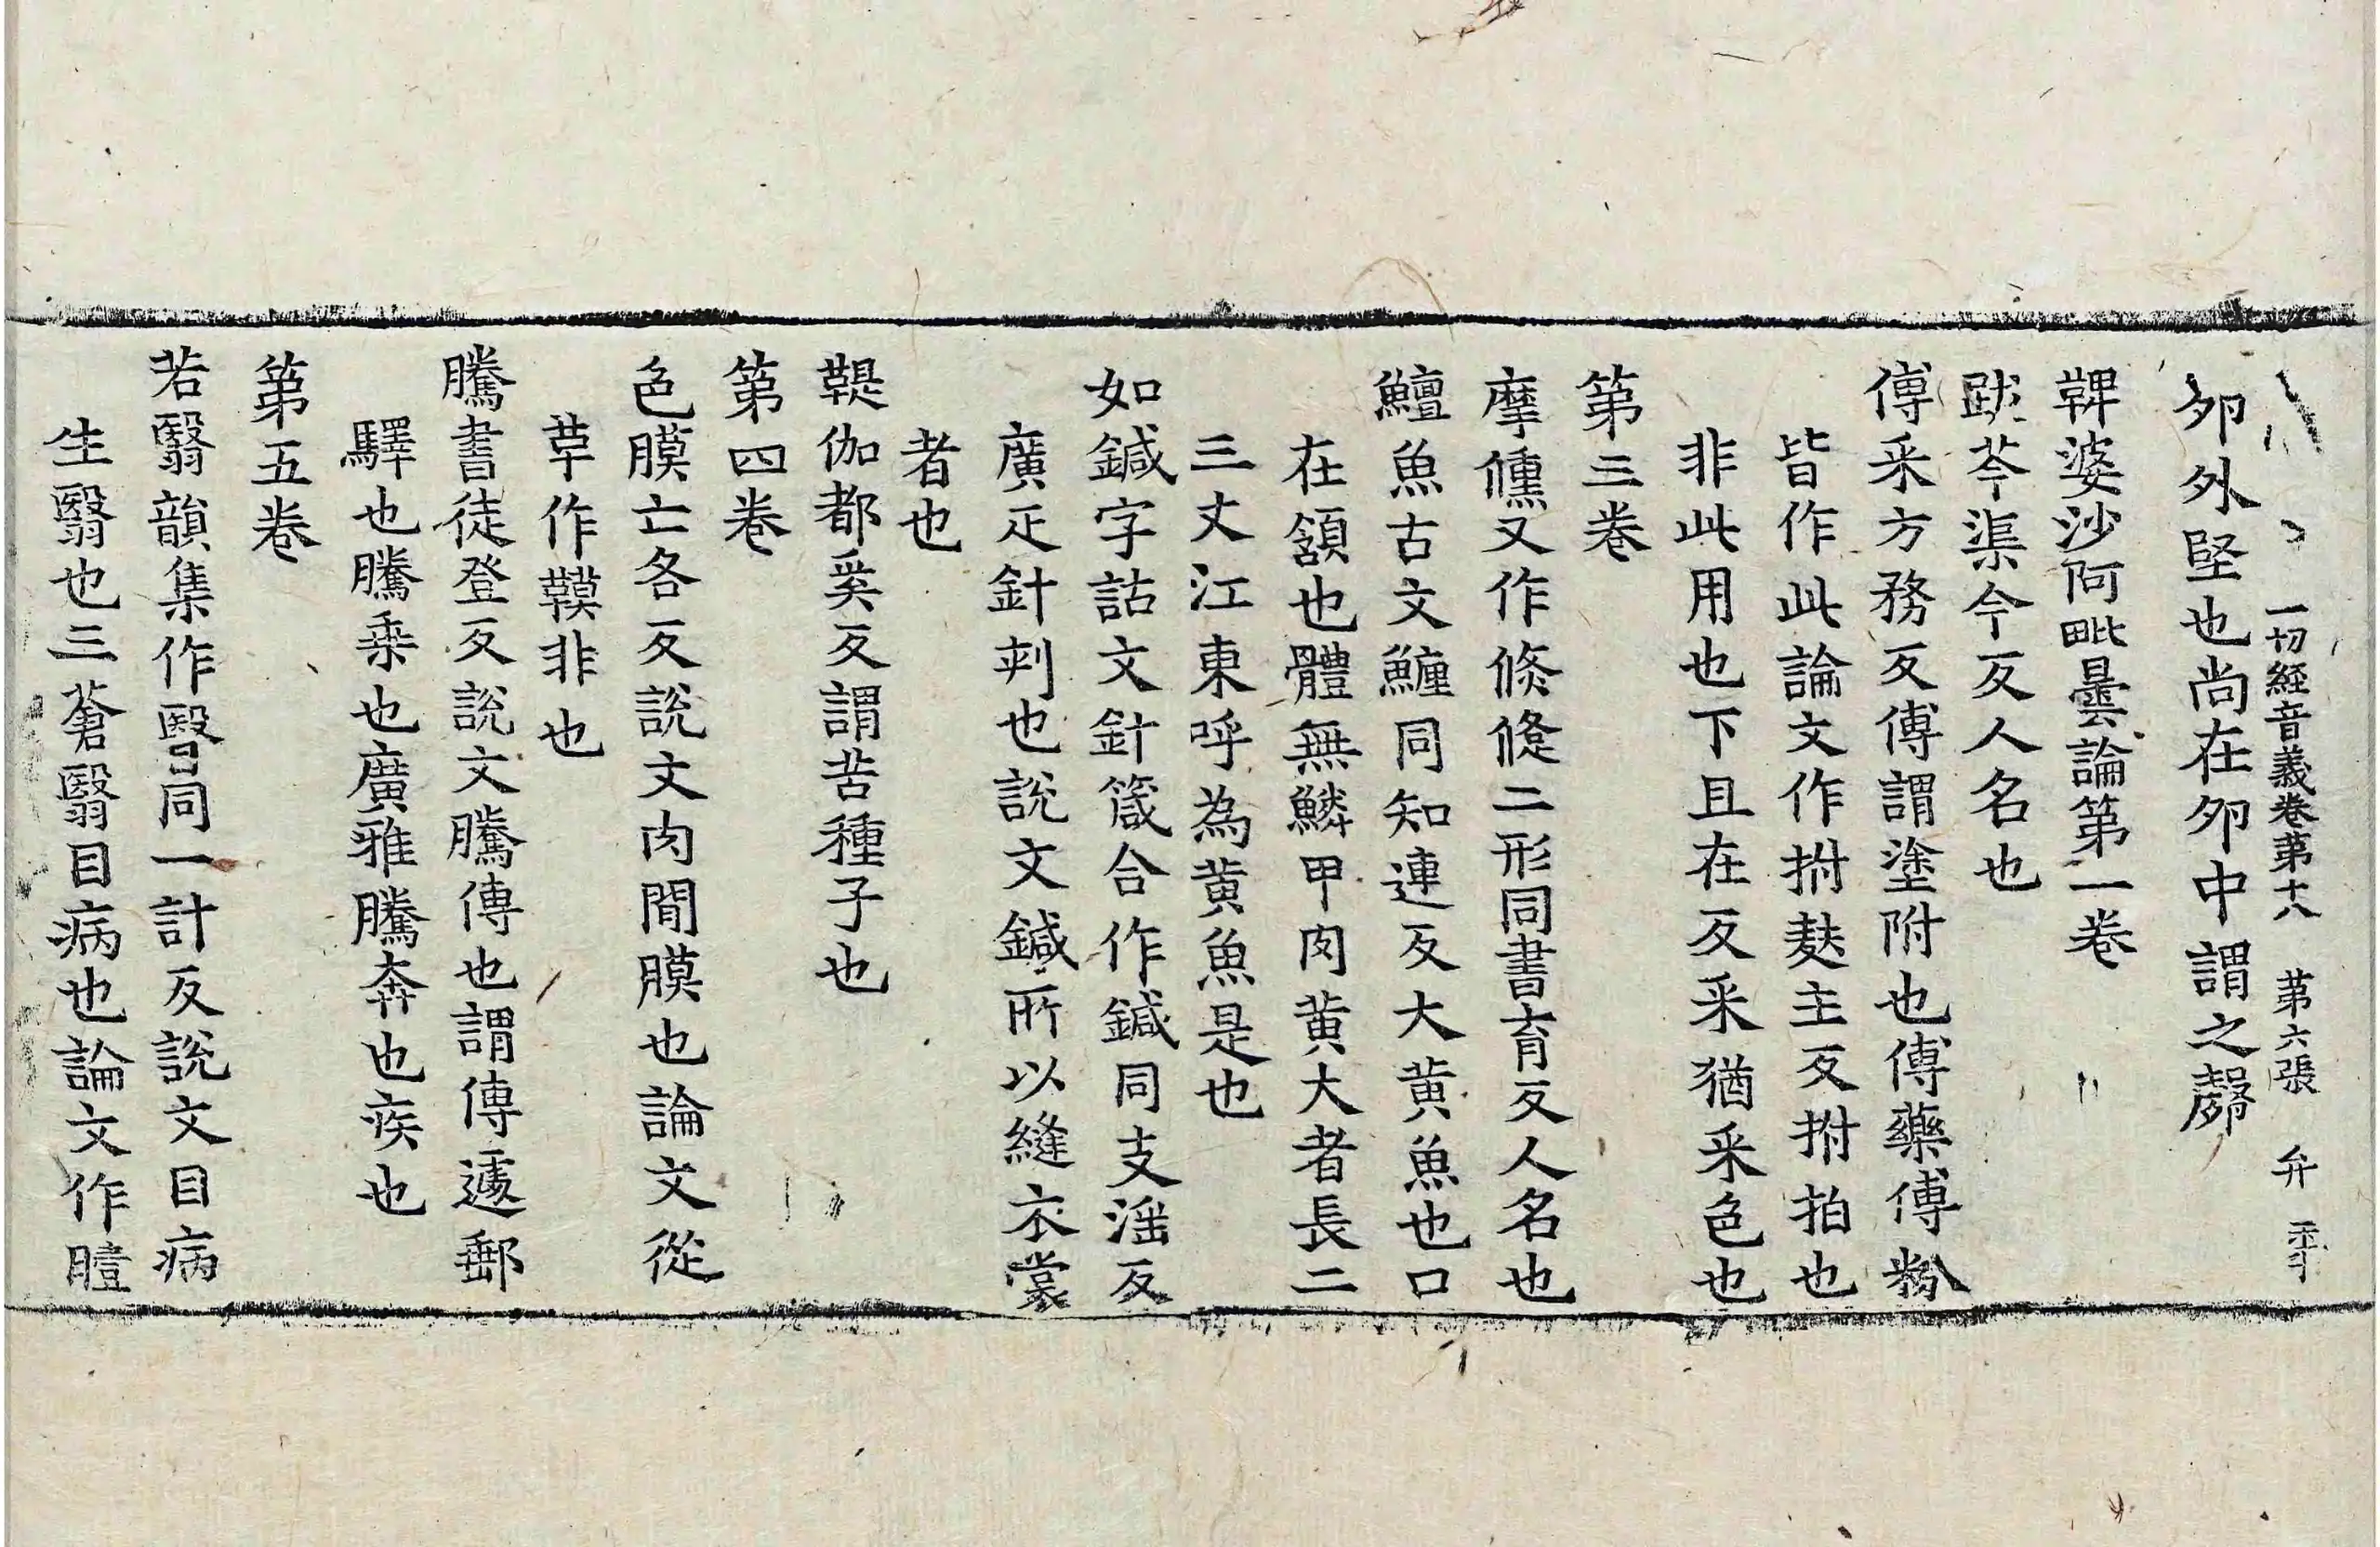 一切經音義卷第十八 第六張 弁
夘外堅也尚在夘中謂之㲉
鞞婆沙阿毗曇論第一卷
跋芩渠今反人名也
傅采方務反傅謂塗附也傅藥傅粉
皆作此論文作拊麩主反拊拍也
非此用也下且在反采猶采色也
第三卷
摩儵又作倏㒔二形同書育反人名也
鱣魚古文䱼同知連反大黃魚也口
在頷也體無鱗甲肉黃大者長二
三丈江東呼為黃魚是也
如鍼字詁文針箴合作鍼同支淫反
廣疋針刺也說文鍼所以縫衣裳
者也
鞮伽都奚反謂苦種子也
第四卷
色膜亡各反說文肉閒膜也論文從
草作鞼非也
騰書徒登反說文騰傳也謂傳遽郵
驛也騰乘也廣雅騰奔也疾也
第五卷
若翳韻集作瞖同一計反說文目病
生翳也三蒼翳目病也論文作曀